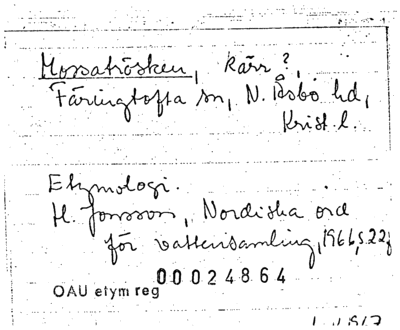 Mossatrösken, kärr?,
Färingtofta sn, N. Åsbo hd,
Krist. l.
Etymologi.
H. Jonsson, Nordiska ord
för vattensamling, 1966, s. 22
00024864
OAU etym reg